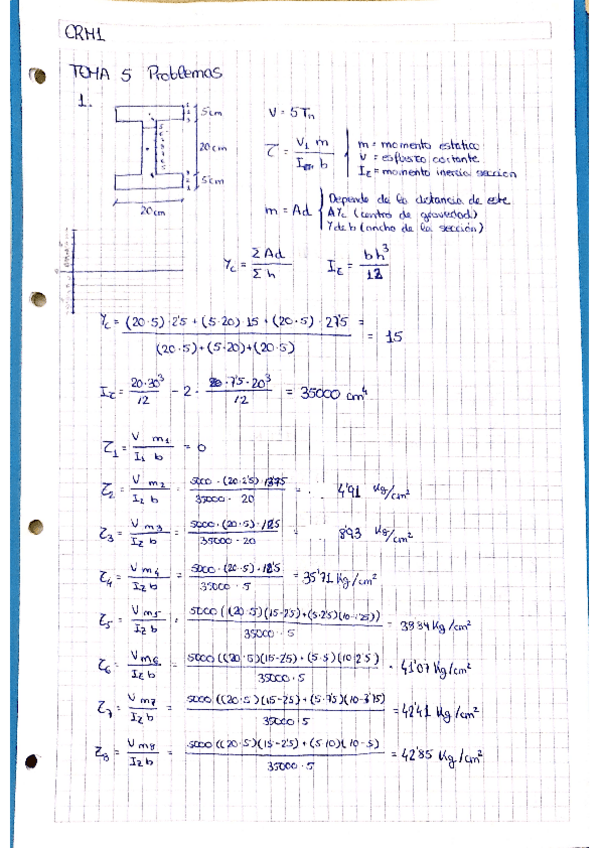 CRM1
TEMA 5 Problemas
1.
5cm
20cm
5cm
20cm
V = 5Tn
τ = V· m / I · b
m = momento estatico
V = esfuerzo cortante
Iz = momento inercia seccion
m = Ad
Depende de la distancia de este
A Yc (centro de gravedad)
Y de b (ancho de la sección)
Yc = ΣAd / Σ h
Iz = bh³ / 12
Yc = (20·5)·2'5 + (5·20)·15 + (20·5)·27'5 / (20·5)+(5·20)+(20·5) = 15
Iz = 20·30³ / 12 - 2 · 7'5·20³ / 12 = 35000 cm⁴
τ1 = V m1 / I1 b = 0
τ2 = V m2 / Iz b = 5000 · (20·2'5)·13'75 / 35000 · 20 = 4'91 Kg/cm²
τ3 = V m3 / Iz b = 5000 · (20·5)·12'5 / 35000 · 20 = 8'93 Kg/cm²
τ4 = V m4 / Iz b = 5000 · (20·5)·12'5 / 35000 · 5 = 35'71 Kg/cm²
τ5 = V m5 / Iz b = 5000((20·5)(15-2'5)+(5·2'5)(10-1'25)) / 35000 · 5 = Kg/cm²
τ6 = V m6 / Iz b = 5000((20·5)(15-2'5)+(5·5)(10-2'5)) / 35000·5 = 41'07 Kg/cm²
τ7 = V m7 / Iz b = 5000((20·5)(15-2'5)+(5·7'5)(10-3'75)) / 35000·5 = 42'41 Kg/cm²
τ8 = V m8 / Iz b = 5000((20·5)(15-2'5)+(5·10)(10-5)) / 35000·5 = 42'85 Kg/cm²